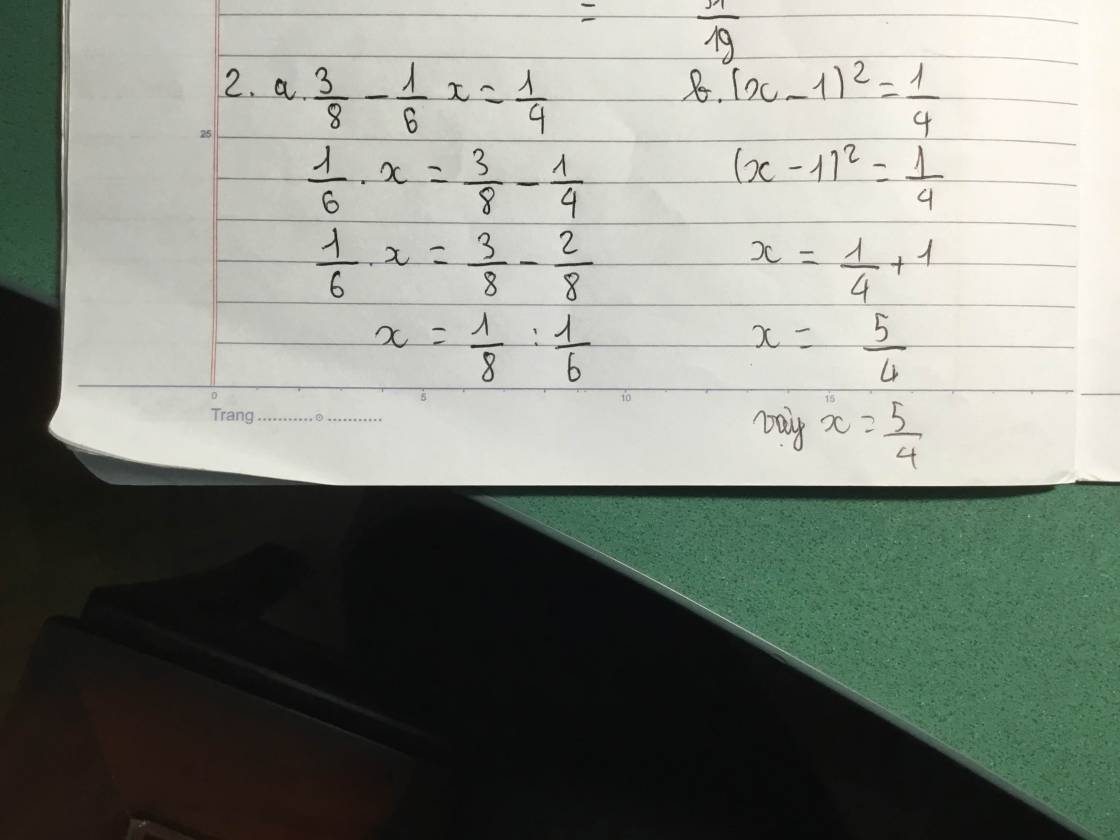 =
19
2. a. 3/8 - 1/6 x = 1/4
1/6 . x = 3/8 - 1/4
1/6 . x = 3/8 - 2/8
x = 1/8 : 1/6
b. (x - 1)² = 1/4
(x - 1)² = 1/4
x = 1/4 + 1
x = 5/4
vậy x = 5/4
25
0 5 10 15
Trang